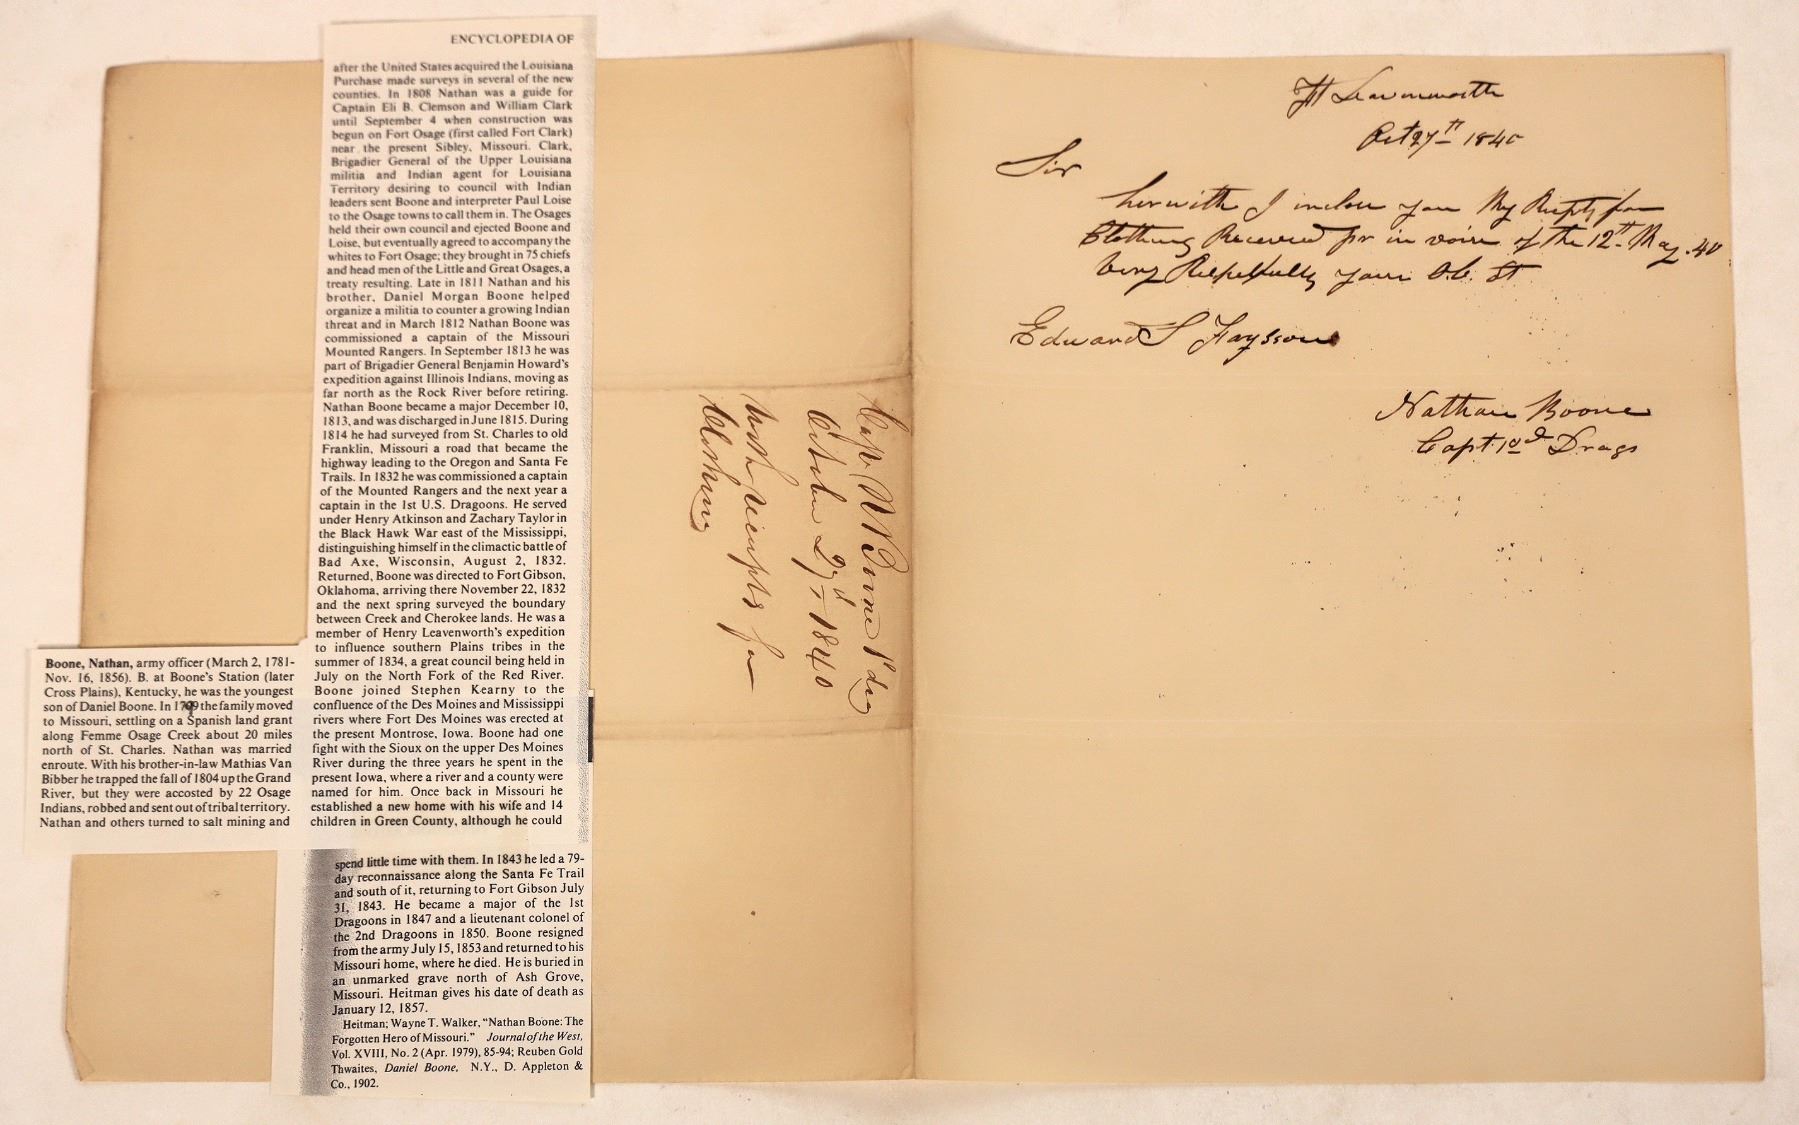 ENCYCLOPEDIA OF
after the United States acquired the Louisiana
Purchase made surveys in several of the new
counties. In 1808 Nathan was a guide for
Captain Eli B. Clemson and William Clark
until September 4 when construction was
begun on Fort Osage (first called Fort Clark)
near the present Sibley, Missouri. Clark,
Brigadier General of the Upper Louisiana
militia and Indian agent for Louisiana
Territory desiring to council with Indian
leaders sent Boone and interpreter Paul Loise
to the Osage towns to call them in. The Osages
held their own council and ejected Boone and
Loise, but eventually agreed to accompany the
whites to Fort Osage; they brought in 75 chiefs
and head men of the Little and Great Osages, a
treaty resulting. Late in 1811 Nathan and his
brother, Daniel Morgan Boone helped
organize a militia to counter a growing Indian
threat and in March 1812 Nathan Boone was
commissioned a captain of the Missouri
Mounted Rangers. In September 1813 he was
part of Brigadier General Benjamin Howard's
expedition against Illinois Indians, moving as
far north as the Rock River before retiring.
Nathan Boone became a major December 10,
1813, and was discharged in June 1815. During
1814 he had surveyed from St. Charles to old
Franklin, Missouri a road that became the
highway leading to the Oregon and Santa Fe
Trails. In 1832 he was commissioned a captain
of the Mounted Rangers and the next year a
captain in the 1st U.S. Dragoons. He served
under Henry Atkinson and Zachary Taylor in
the Black Hawk War east of the Mississippi,
distinguishing himself in the climactic battle of
Bad Axe, Wisconsin, August 2, 1832.
Returned, Boone was directed to Fort Gibson,
Oklahoma, arriving there November 22, 1832
and the next spring surveyed the boundary
between Creek and Cherokee lands. He was a
member of Henry Leavenworth's expedition
to influence southern Plains tribes in the
summer of 1834, a great council being held in
July on the North Fork of the Red River.
Boone joined Stephen Kearny to the
confluence of the Des Moines and Mississippi
rivers where Fort Des Moines was erected at
the present Montrose, Iowa. Boone had one
fight with the Sioux on the upper Des Moines
River during the three years he spent in the
present Iowa, where a river and a county were
named for him. Once back in Missouri he
established a new home with his wife and 14
children in Green County, although he could
Boone, Nathan, army officer (March 2, 1781-
Nov. 16, 1856). B. at Boone's Station (later
Cross Plains), Kentucky, he was the youngest
son of Daniel Boone. In 1799 the family moved
to Missouri, settling on a Spanish land grant
along Femme Osage Creek about 20 miles
north of St. Charles. Nathan was married
enroute. With his brother-in-law Mathias Van
Bibber he trapped the fall of 1804 up the Grand
River, but they were accosted by 22 Osage
Indians, robbed and sent out of tribal territory.
Nathan and others turned to salt mining and
spend little time with them. In 1843 he led a 79-
day reconnaissance along the Santa Fe Trail
and south of it, returning to Fort Gibson July
31, 1843. He became a major of the 1st
Dragoons in 1847 and a lieutenant colonel of
the 2nd Dragoons in 1850. Boone resigned
from the army July 15, 1853 and returned to his
Missouri home, where he died. He is buried in
an unmarked grave north of Ash Grove,
Missouri. Heitman gives his date of death as
January 12, 1857.
Heitman; Wayne T. Walker, "Nathan Boone: The
Forgotten Hero of Missouri." Journal of the West,
Vol. XVIII, No. 2 (Apr. 1979), 85-94; Reuben Gold
Thwaites, Daniel Boone. N.Y., D. Appleton &
Co., 1902.
Capt N Boone 1st drg
October 27th 1840
with receipts for
Clothing
Ft Leavenworth
Oct 27th 1840
Sir
herwith I inclose you My Recipts for
Clothing Received pr in voice of the 12th May. 40
very Respectfully your Ob. St
Edward S Fayssoux
Nathan Boone
Capt 1st Drags